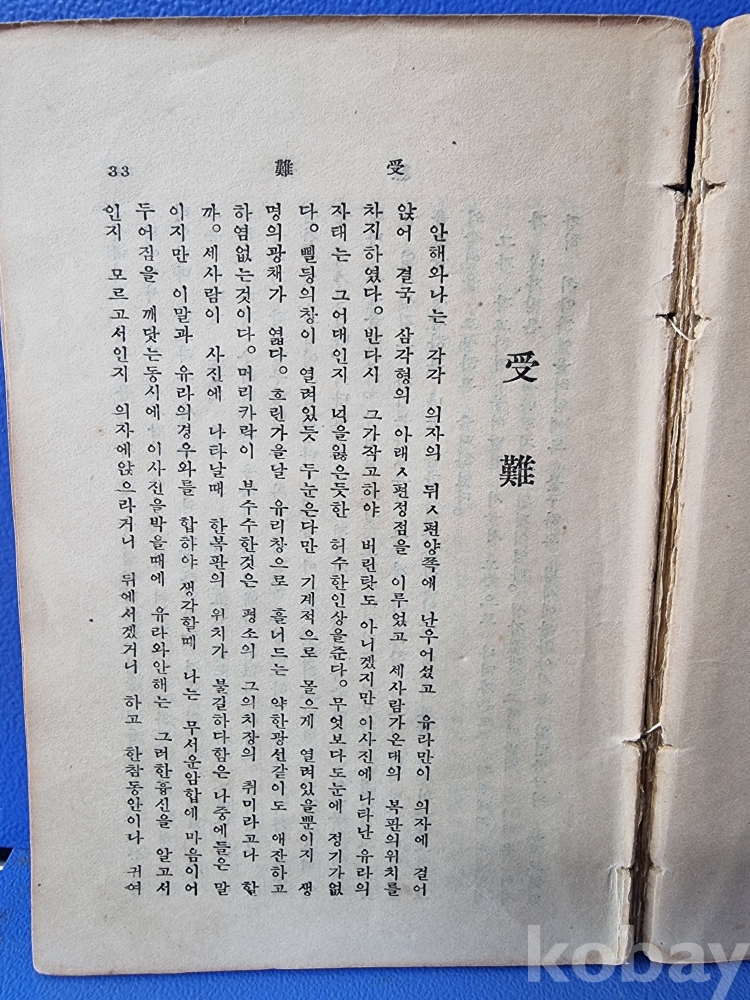 33 難 受
受難
안해와나는 각각 의자의 뒤ㅅ편양쪽에 난우어섰고 유라만이 의자에 걸어
앉어 결국 삼각형의 아래ㅅ편정점을 이루었고 세사람가온대의 복판의위치를
차지하였다。반다시 그가작고하야 버린탓도 아니겠지만 이사진에 나타난 유라의
자태는 그어대인지 넋을잃은듯한 허수한인상을준다。무엇보다도눈에 정기가없
다。삘딍의창이 열려있듯 두눈은다만 기계적으로 몰으게 열려있을뿐이지 생
명의광채가 엷다。흐린가을날 유리창으로 흘너드는 약한광선같이도 애잔하고
하염없는것이다。머리카락이 부수수한것은 평소의 그의치장의 취미라고나 할
까。세사람이 사진에 나타날때 한복판의 위치가 불길하다함은 나중에들은 말
이지만 이말과 유라의경우와를 합하야 생각할때 나는 무서운암합에 마음이어
두어짐을 깨닷는동시에 이사진을박을때에 유라와안해는 그러한흉신을 알고서
인지 모르고서인지 의자에앉으라거니 뒤에서겠거니 하고 한참동안이나 귀여
kobay